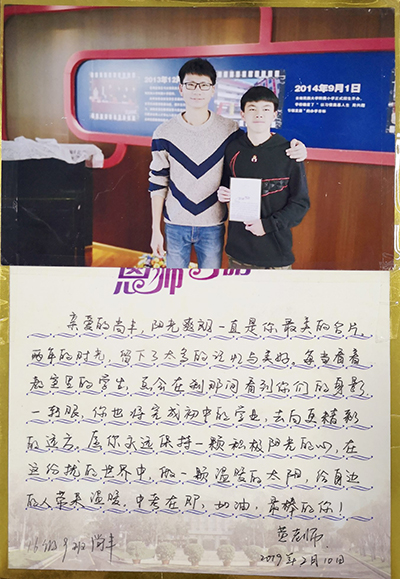 2013年12月
2014年9月1日
恩师寄语
亲爱的尚丰，阳光爽朗一直是你最美的名片。
两年的时光，留下了太多的记忆与美好，每当看着
教室里的学生，总会在刹那间看到你们的身影
一转眼，你也将完成初中的学业，去向更精彩
的远方。愿你永远保持一颗积极阳光的心，在
这纷扰的世界中，做一颗温暖的太阳，给身边
的人带来温暖，中考在即，加油，最棒的你！
16级9班 尚丰
黄老师
2019年2月10日